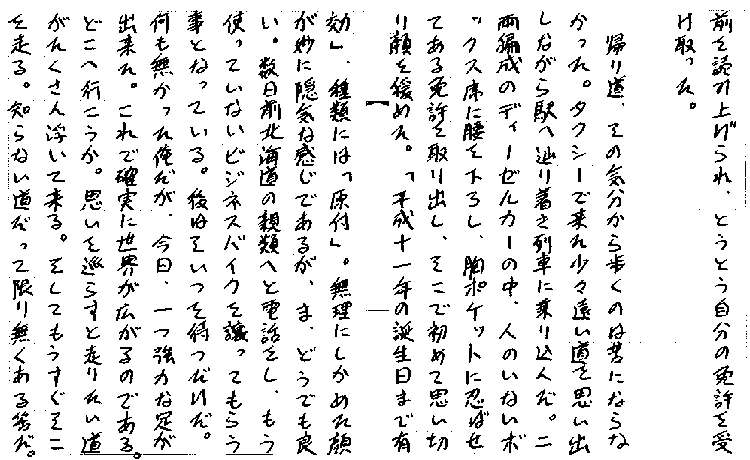 前を読み上げられ、とうとう自分の免許を受
け取った。
帰り道、その気分から歩くのは苦にならな
かった。タクシーで来た少々遠い道を思い出
しながら駅へ辿り着き列車に乗り込んだ。二
両編成のディーゼルカーの中、人のいないボ
ックス席に腰を下ろし、胸ポケットに忍ばせ
てある免許を取り出し、そこで初めて思い切
り顔を緩めた。「平成十一年の誕生日まで有
効」、種類には「原付」。無理にしかめた顔
が妙に陰気な感じであるが、ま、どうでも良
い。数日前北海道の親類へと電話をし、もう
使っていないビジネスバイクを譲ってもらう
事となっている。後はそいつを待つだけだ。
何も無かった俺だが、今日、一つ強力な足が
出来た。これで確実に世界が広がるのである。
どこへ行こうか。思いを巡らすと走りたい道
がたくさん浮いて来る。そしてもうすぐそこ
を走る。知らない道だって限り無くある筈だ。